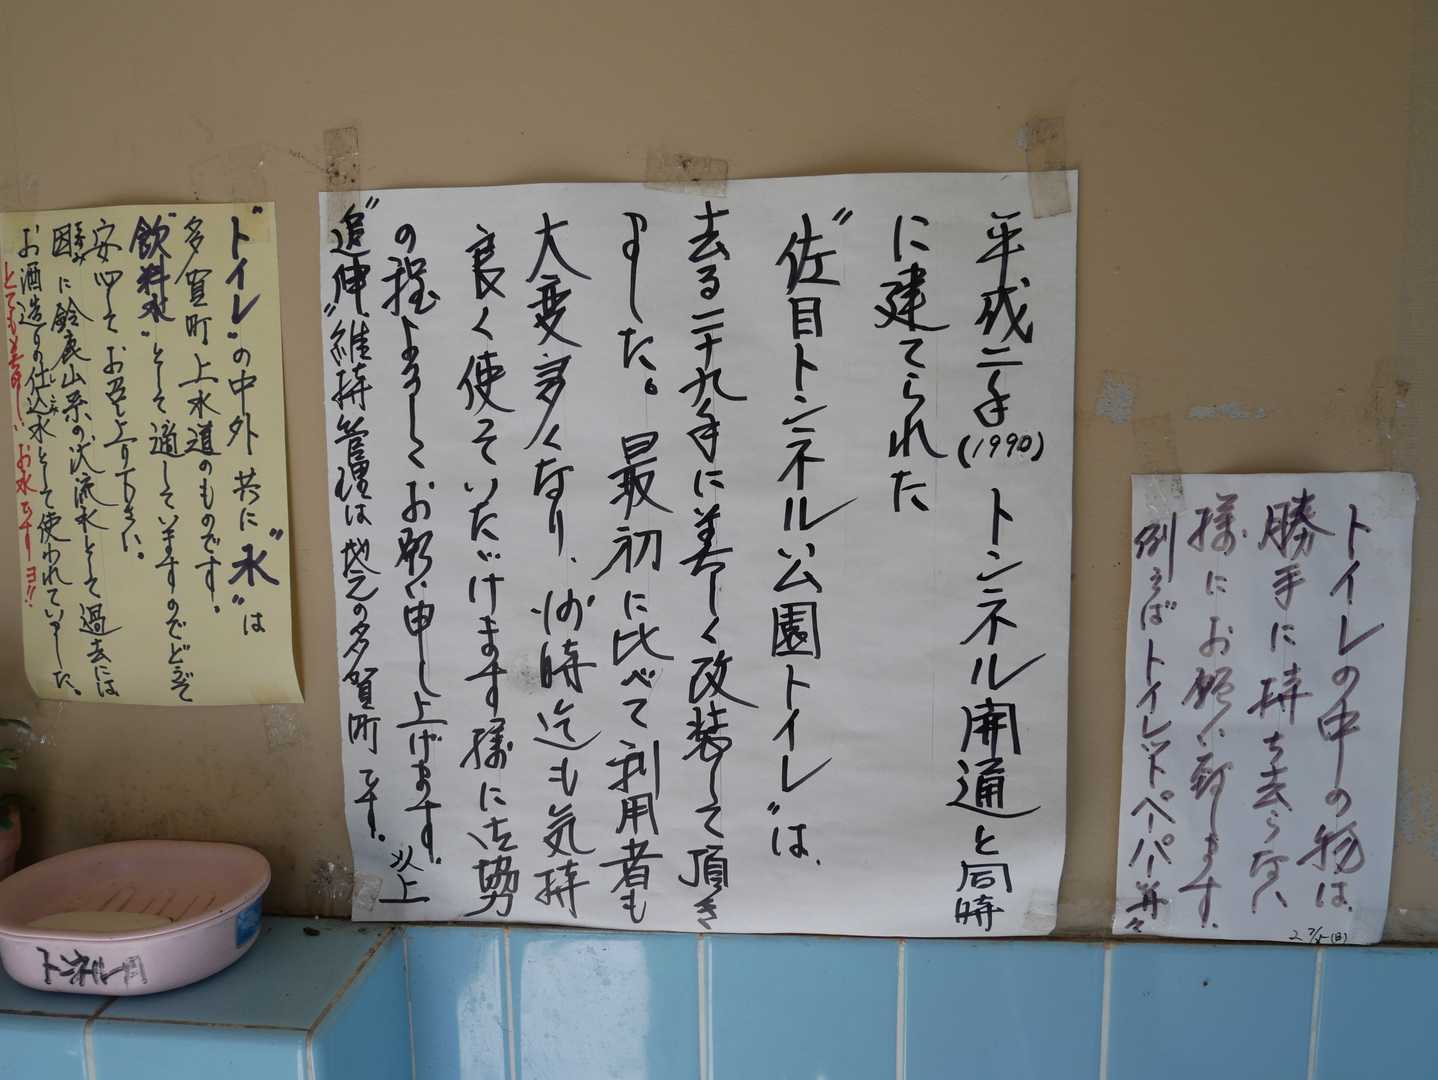 トイレの中の物は、
勝手に持ち去らない
様にお願い致します。
例えばトイレットペーパー等々
2 7/5(日)
平成二年(1990)トンネル開通と同時
に建てられた
"佐目トンネル公園トイレ"は、
去る二十九年に美しく改装して頂き
ました。最初に比べて利用者も
大変多くなり、何時迄も気持
良く使っていただけます様に御勢
の程よろしくお願い申し上げます。以上
"追伸"維持管理は地元の多賀町です。
"トイレ"の中外共に"水"は
多賀町上水道のものです。
"飲料水"として適していますのでどうぞ
安心してお召し上り下さい。
因みに鈴鹿山系の伏流水として過去には
お酒造りの仕込水として使われていました。
とても美味しいお水ですヨ!!
トンネル用